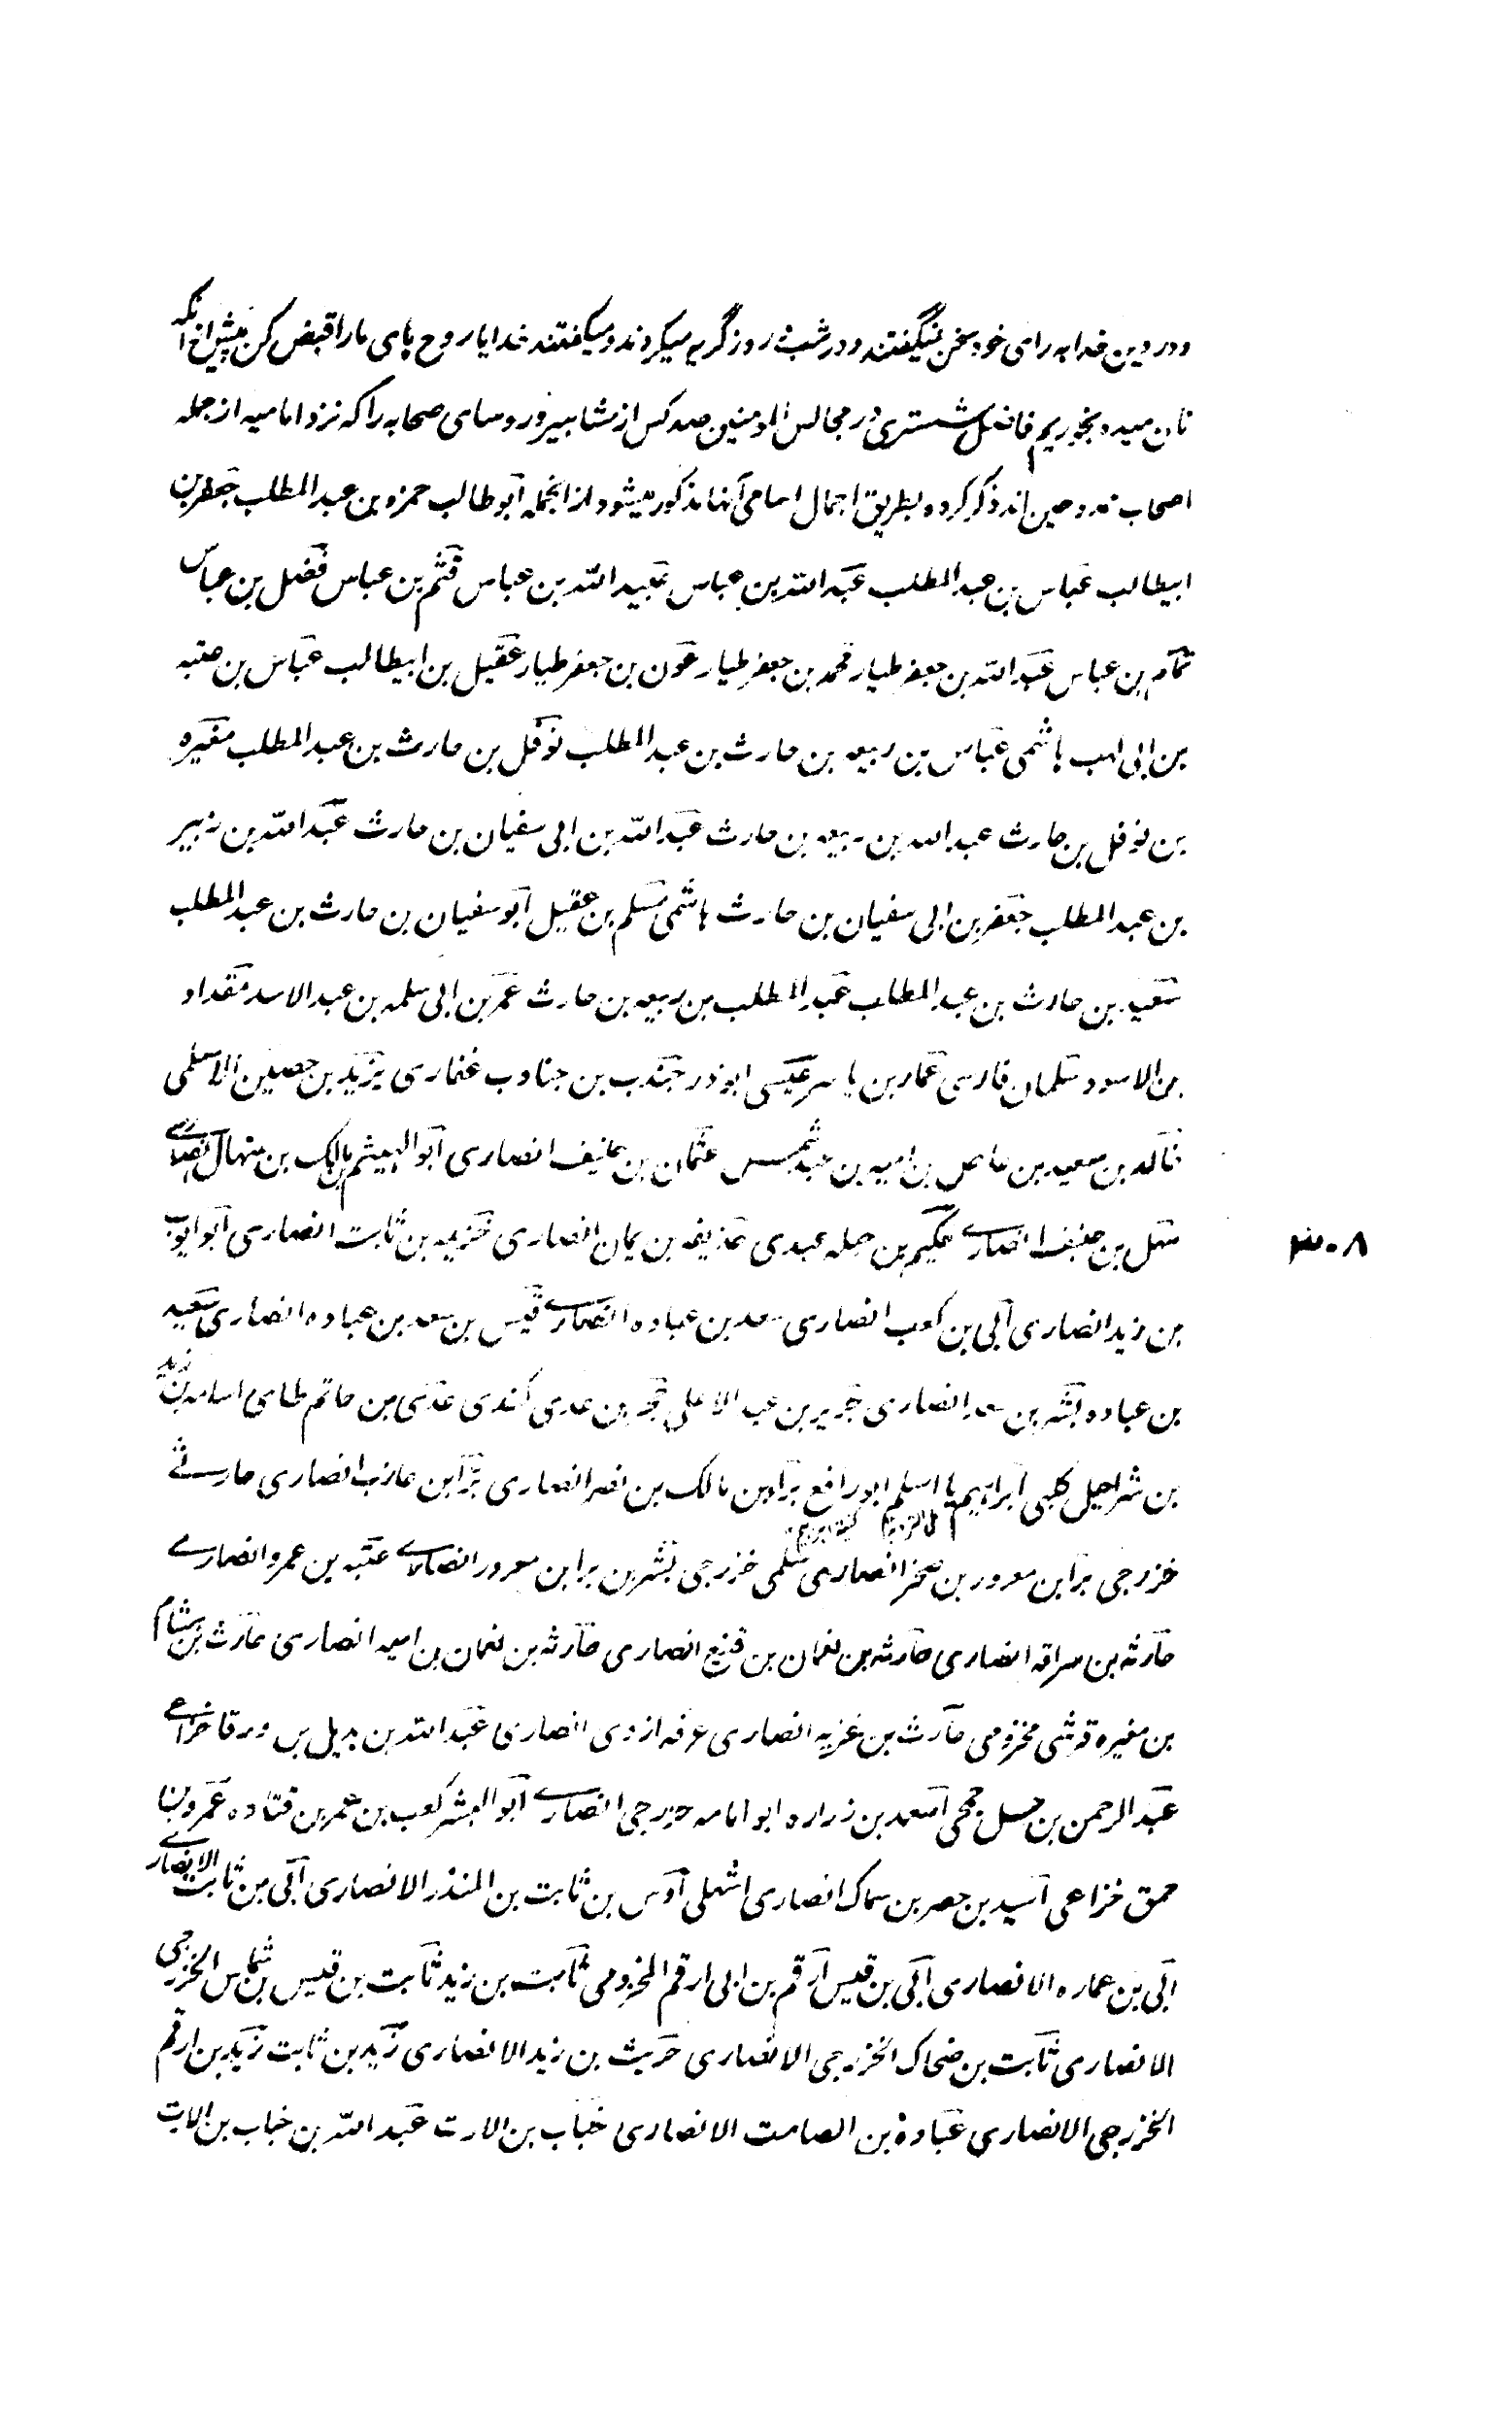 و در دین خدا به رای خود سخن نمیگفتند و در شب و روز گریه میکردند و میگفتند خدایا روح پای ما را قبض کن پیش از آنکه
نان میده بخوریم فاضل شستری در مجالس المومنین صد کس از مشاهیر و روسای صحابه را که نزد امامیه از جمله
اصحاب ممدوحین اند ذکر کرده و بطریق اجمال اسامی آنها مذکور میشود از انجمله ابو طالب حمزه بن عبد المطلب جعفر بن
ابیطالب عباس بن عبد المطلب عبد الله بن عباس عبید الله بن عباس قثم بن عباس فضل بن عباس
تمام بن عباس عبد الله بن جعفر طیار محمد بن جعفر طیار عون بن جعفر طیار عقیل بن ابیطالب عباس بن عتبه
بن ابی لهب هاشمی عباس بن ربیعه بن حارث بن عبد المطلب نوفل بن حارث بن عبد المطلب مغیره
بن نوفل بن حارث عبد الله بن ربیعه بن حارث عبد الله بن ابی سفیان بن حارث عبد الله بن زبیر
بن عبد المطلب جعفر بن ابی سفیان بن حارث هاشمی مسلم بن عقیل ابو سفیان بن حارث بن عبد المطلب
سعید بن حارث بن عبد المطلب عبد المطلب بن ربیعه بن حارث عمر بن ابی سلمه بن عبد الاسد مقداد
بن الاسود سلمان فارسی عمار بن یاسر عیسی ابوذر جندب بن جنادب غفاری یزید بن حصین الاسلمی
خالد بن سعید بن عاص بن امیه بن عبد شمس عثمان بن حنیف انصاری ابو الهیثم مالک بن تیهان انصاری
سهل بن حنیف انصاری حکیم بن جبله عبدی حذیفه بن یمان انصاری خزیمه بن ثابت انصاری ابو ایوب
۳۰۸
بن زید انصاری ابی بن کعب انصاری سعد بن عباده انصاری قیس بن سعد بن عباده انصاری سعید
بن عباده بشر بن سعد انصاری جریر بن عبد الاعلی حجر بن عدی کندی عدی بن حاتم طایی اسامه بن زید
بن شراحیل کلبی ابراهیم یا اسلم ابو رافع برا بن مالک بن نضر انصاری برا بن عازب انصاری حارثی
خزرجی برا بن معرور بن صخر انصاری سلمی خزرجی بشر بن برا بن معرور انصاری عتبه بن عمرو انصاری
حارثه بن سراقه انصاری حارثه بن نعمان بن انصاری حارثه بن نعمان بن امیه انصاری حارث بن هشام
بن مغیره قرشی مخزومی حارث بن غزیه انصاری عرفه ازدی انصاری عبد الله بن بدیل بن ورقا خزاعی
عبد الرحمن بن حسل جمحی اسعد بن زراره ابو امامه خزرجی انصاری ابو البشر کعب بن عمر بن قتاده عمرو بن
حمق خزاعی اسید بن حصر بن سماک انصاری اشهلی اوس بن ثابت بن المنذر الانصاری ابی بن ثابت الانصاری
ابی بن عماره الانصاری ابی بن قیس ارقم بن ابی ارقم المخزومی ثابت بن زید ثابت بن قیس بن شماس الخزرجی
الانصاری ثابت بن ضحاک الخزرجی الانصاری حریث بن زید الانصاری زید بن ثابت زید بن ارقم
الخزرجی الانصاری عبادة بن الصامت الانصاری خباب بن الارت عبد الله بن خباب بن الارت